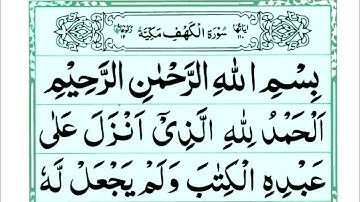 اٰیَاتُهَا ١١٠ سُوْرَةُ الْكَهْفِ مَكِّیَّةٌ
بِسْمِ اللّٰهِ الرَّحْمٰنِ الرَّحِیْمِ
اَلْحَمْدُ لِلّٰهِ الَّذِیْۤ اَنْزَلَ عَلٰى
عَبْدِهِ الْكِتٰبَ وَلَمْ یَجْعَلْ لَّهٗ